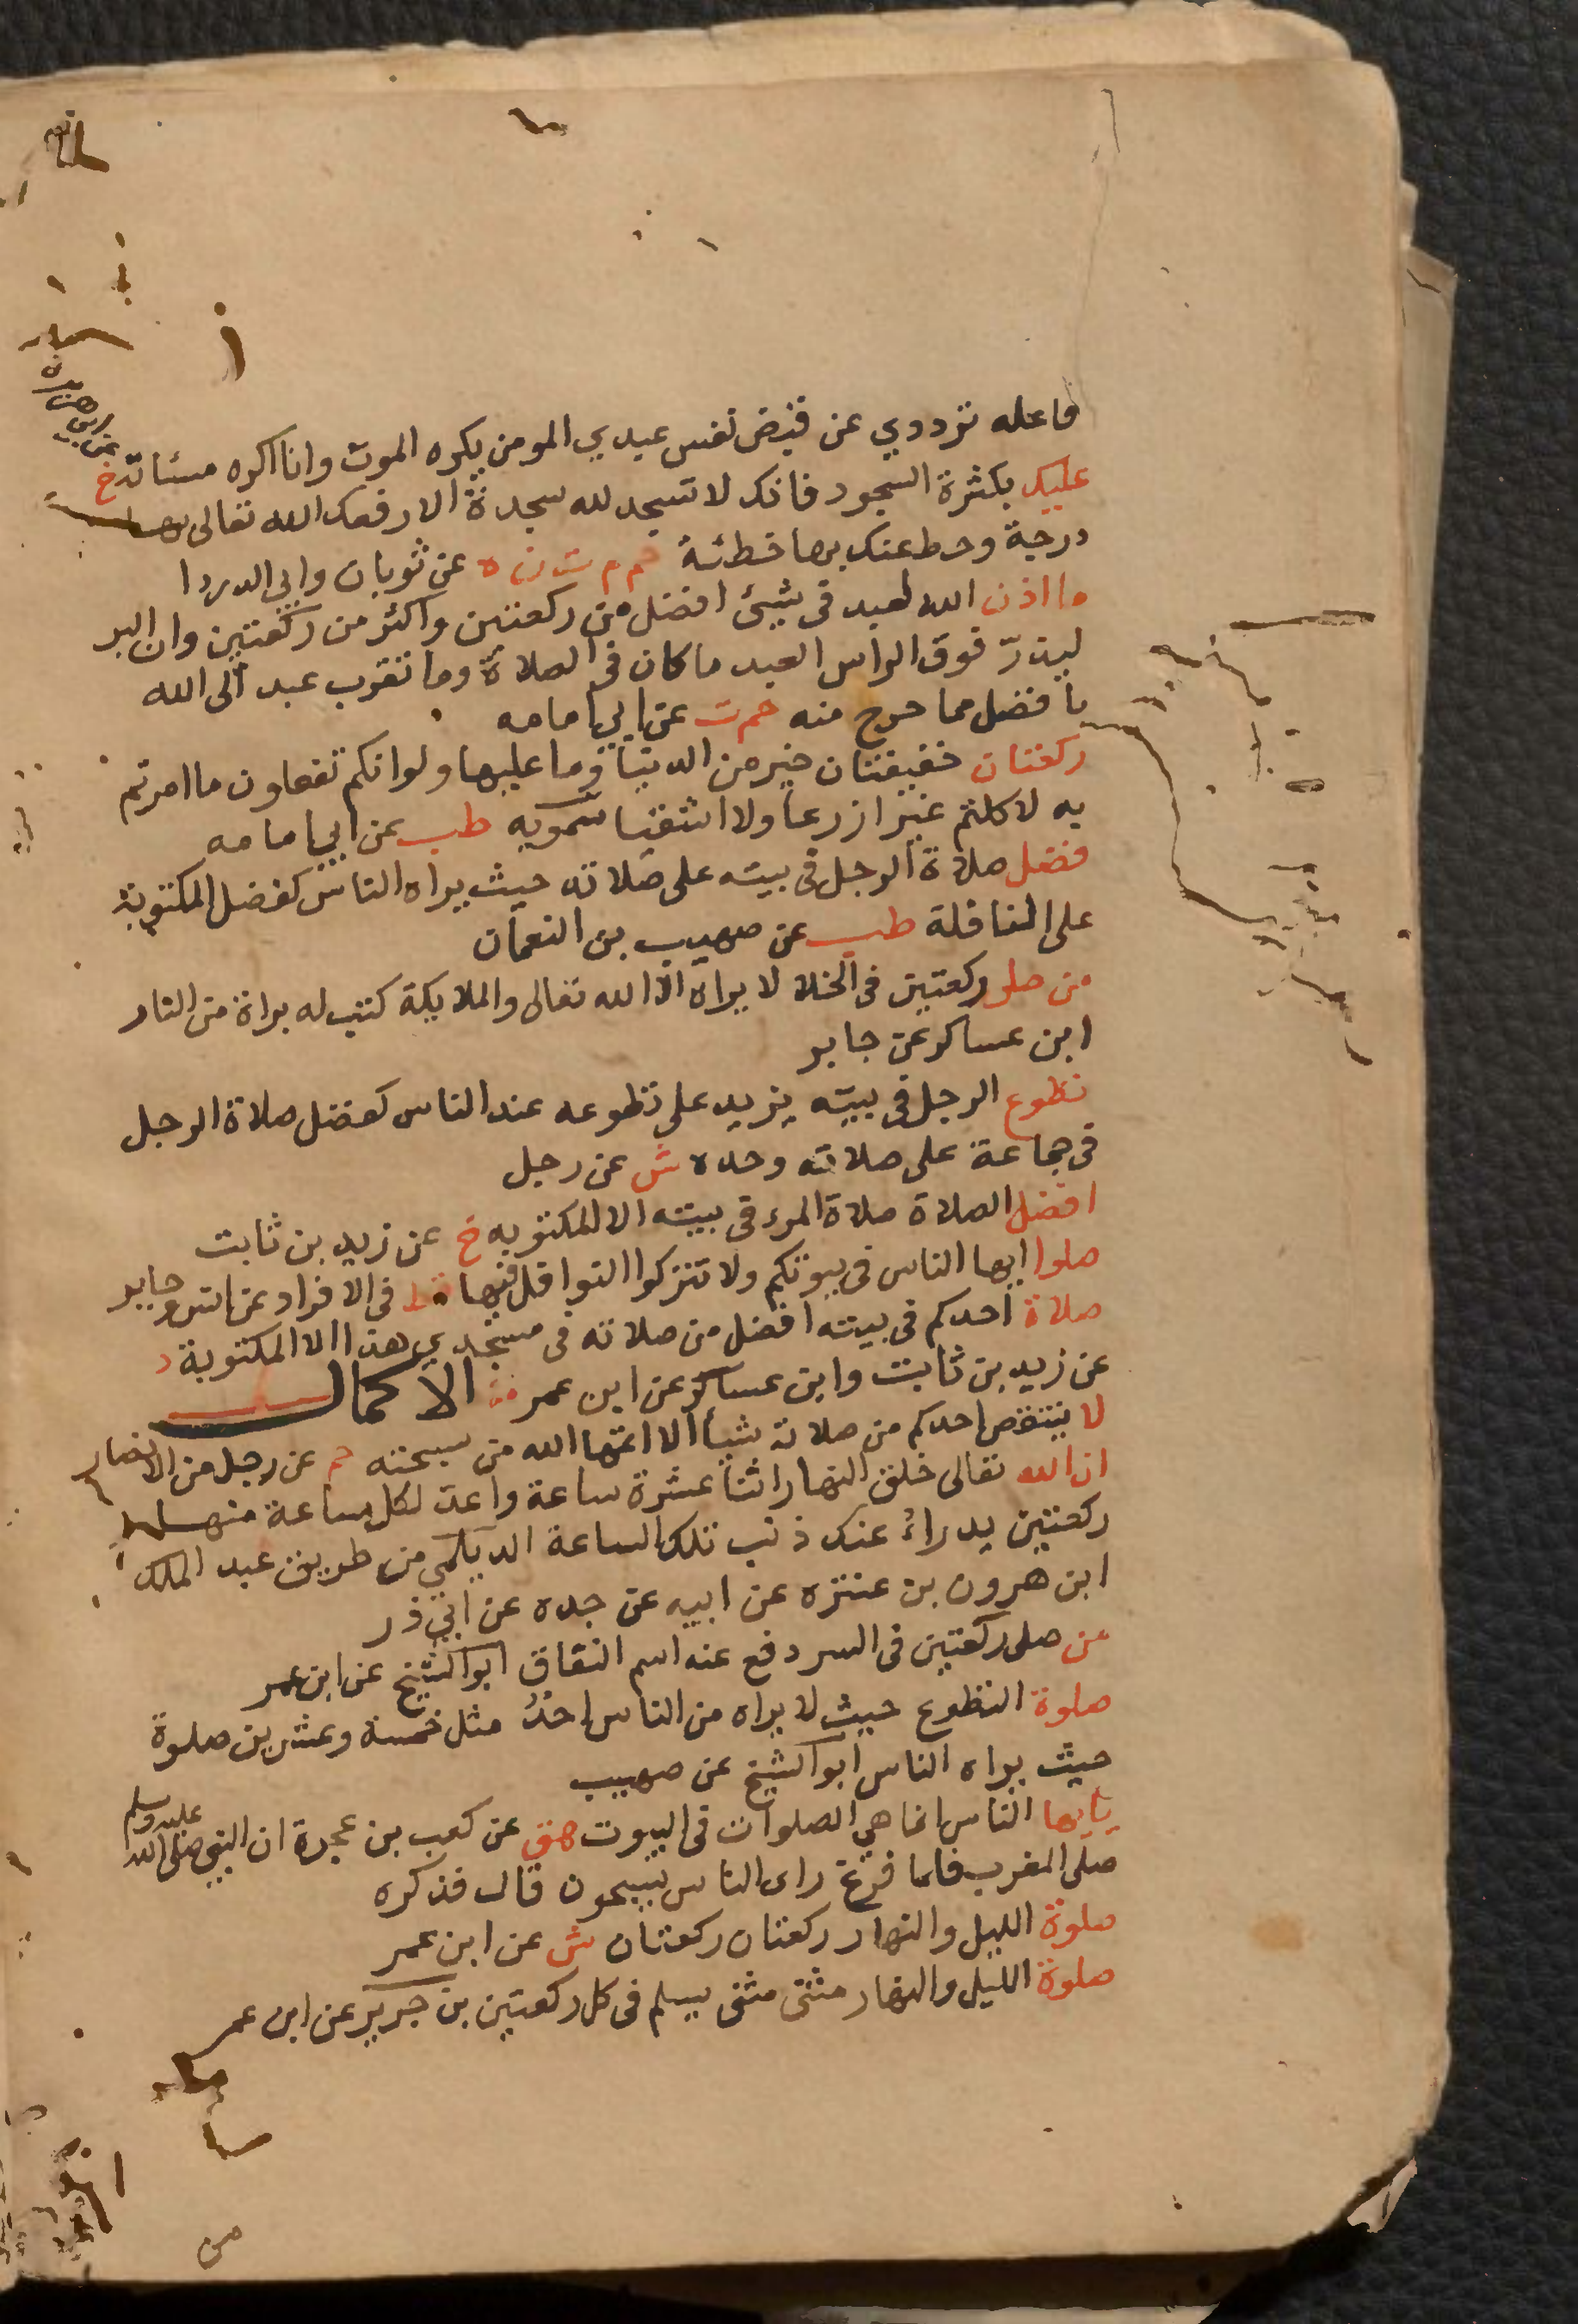 فاعله ترددي عن قبض نفس عبدي المومن يكره الموت وانا اكره مسئاته خ
عن ابي هريرة
عليك بكثرة السجود فانك لا تسجد لله سجدة الا رفعك الله تعالى بها
درجة وحط عنك بها خطئة حم م ت ن ه عن ثوبان وابي الدردا
ما اذن الله لعبد في شيئ افضل من ركعتين واكثر من ركعتين وان البر
ليذرّ فوق الراس العبد ما كان في الصلاة وما تقرب عبد الى الله
بافضل مما خرج منه حم ت عن ابي امامه
ركعتان خفيفتان خير من الدنيا وما عليها ولو انكم تفعلون ما امرتم
به لاكلتم غير ازرعا ولا اشقيا سمويه طب عن ابي امامه
فضل صلاة الرجل في بيته على صلاته حيث يراه الناس كفضل المكتوبة
على النافلة طب عن صهيب بن النعمان
من صلى ركعتين في الخلا لا يراه الا الله تعالى والملايكة كتب له براة من النار
ابن عساكر عن جابر
تطوع الرجل في بيته يزيد على تطوعه عند الناس كفضل صلاة الرجل
في جماعة على صلاته وحده ش عن رجل
افضل الصلاة صلاة المرء في بيته الا المكتوبه خ عن زيد بن ثابت
صلوا ايها الناس في بيوتكم ولا تتركوا النوافل فيها قط في الافراد عن انس وجابر
صلاة احدكم في بيته افضل من صلاته في مسجدي هذا الا المكتوبة د
عن زيد بن ثابت وابن عساكر عن ابن عمر من الاكمال
لا ينتقص احدكم من صلاته شيأ الا اتمها الله من سبحته حم عن رجل من الانصار
ان الله تعالى خلق النهار اثنا عشرة ساعة واعد لكل ساعة منها
ركعتين يدراءُ عنك ذنب تلك الساعة الديلمي من طريق عبد الملك
ابن هرون بن عنتره عن ابيه عن جده عن ابي ذر
من صلى ركعتين في السر دفع عنه اسم النفاق ابو الشيخ عن ابن عمر
صلوة التطوع حيث لا يراه من الناس احدُ مثل خمسة وعشرين صلوة
حيث يراه الناس ابو الشيخ عن صهيب
يايها الناس انما هي الصلوات في البيوت هق عن كعب بن عجرة ان النبي صلى الله عليه وسلم
صلى المغرب فلما فرغ راى الناس يسبحون قال فذكره
صلوة الليل والنهار ركعتان ركعتان ش عن ابن عمر
صلوة الليل والنهار مثنى مثنى يسلم في كل ركعتين بن جرير عن ابن عمر
من